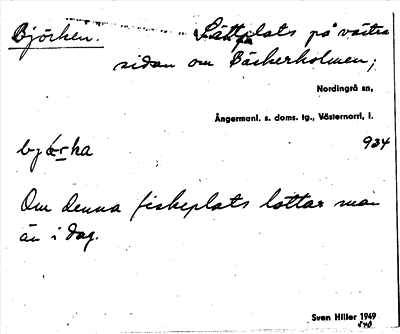 Björken. Lättplats på västra
sidan om Bäckerholmen;
Nordingrå sn,
Ångermanl. s. doms. tg., Västernorrl. l.
934
björka
Om denna fiskeplats lottar man
än i dag.
Sven Hiller 1949